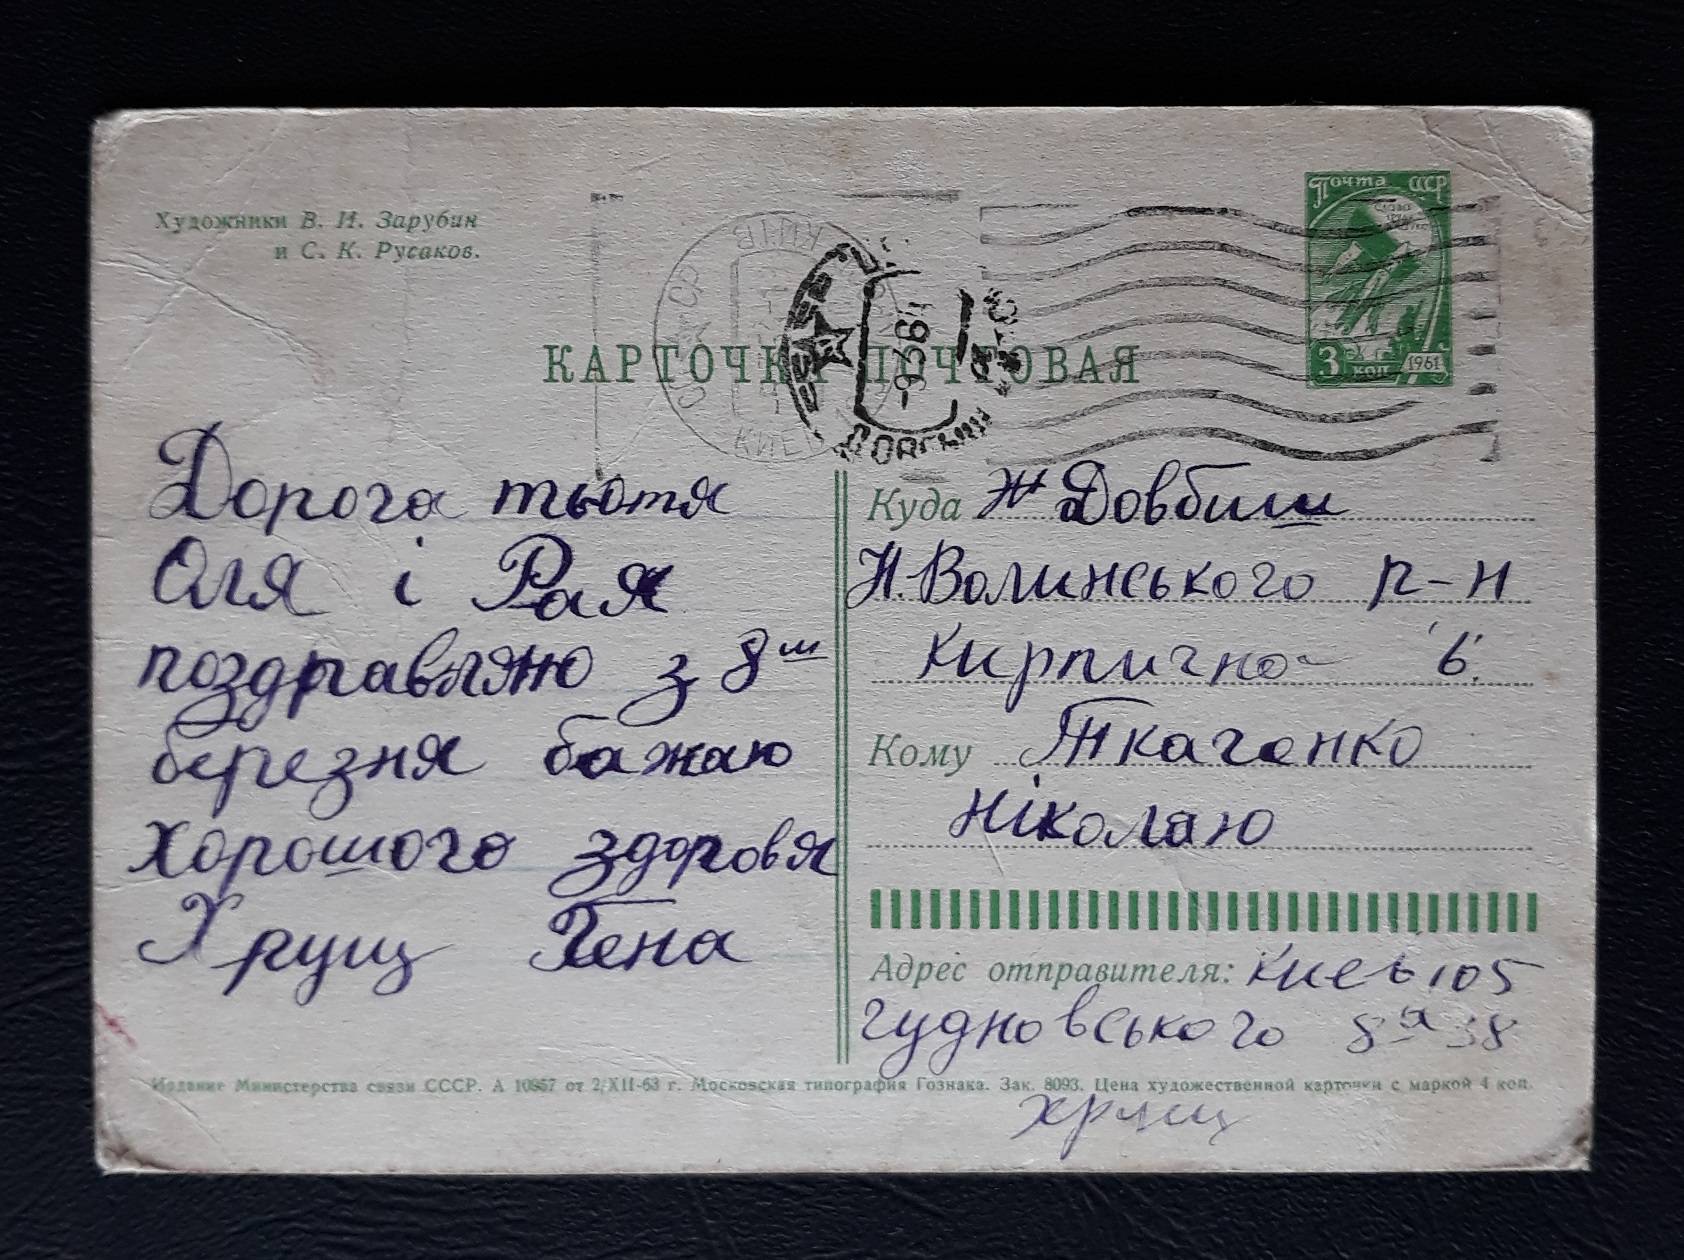 Художники В. И. Зарубин
и С. К. Русаков.
Почта СССР
3 коп 1961
КИЇВ
КИЕВ
КАРТОЧКА ПОЧТОВАЯ
Дорога тьотя
Оля і Рая
поздравляю з 8ш
березня бажаю
хорошого здоровя
Хрущ Гена
Куда Ж Довбиш
Н.Волинського р-н
Кирпична 6.
Кому Ткаченко
Ніколаю
Адрес отправителя: Киев 105
Чудновського 8а 38
Хрущ
Издание Министерства связи СССР. А 10867 от 2/XII-63 г. Московская типография Гознака. Зак. 8093. Цена художественной карточки с маркой 4 коп.